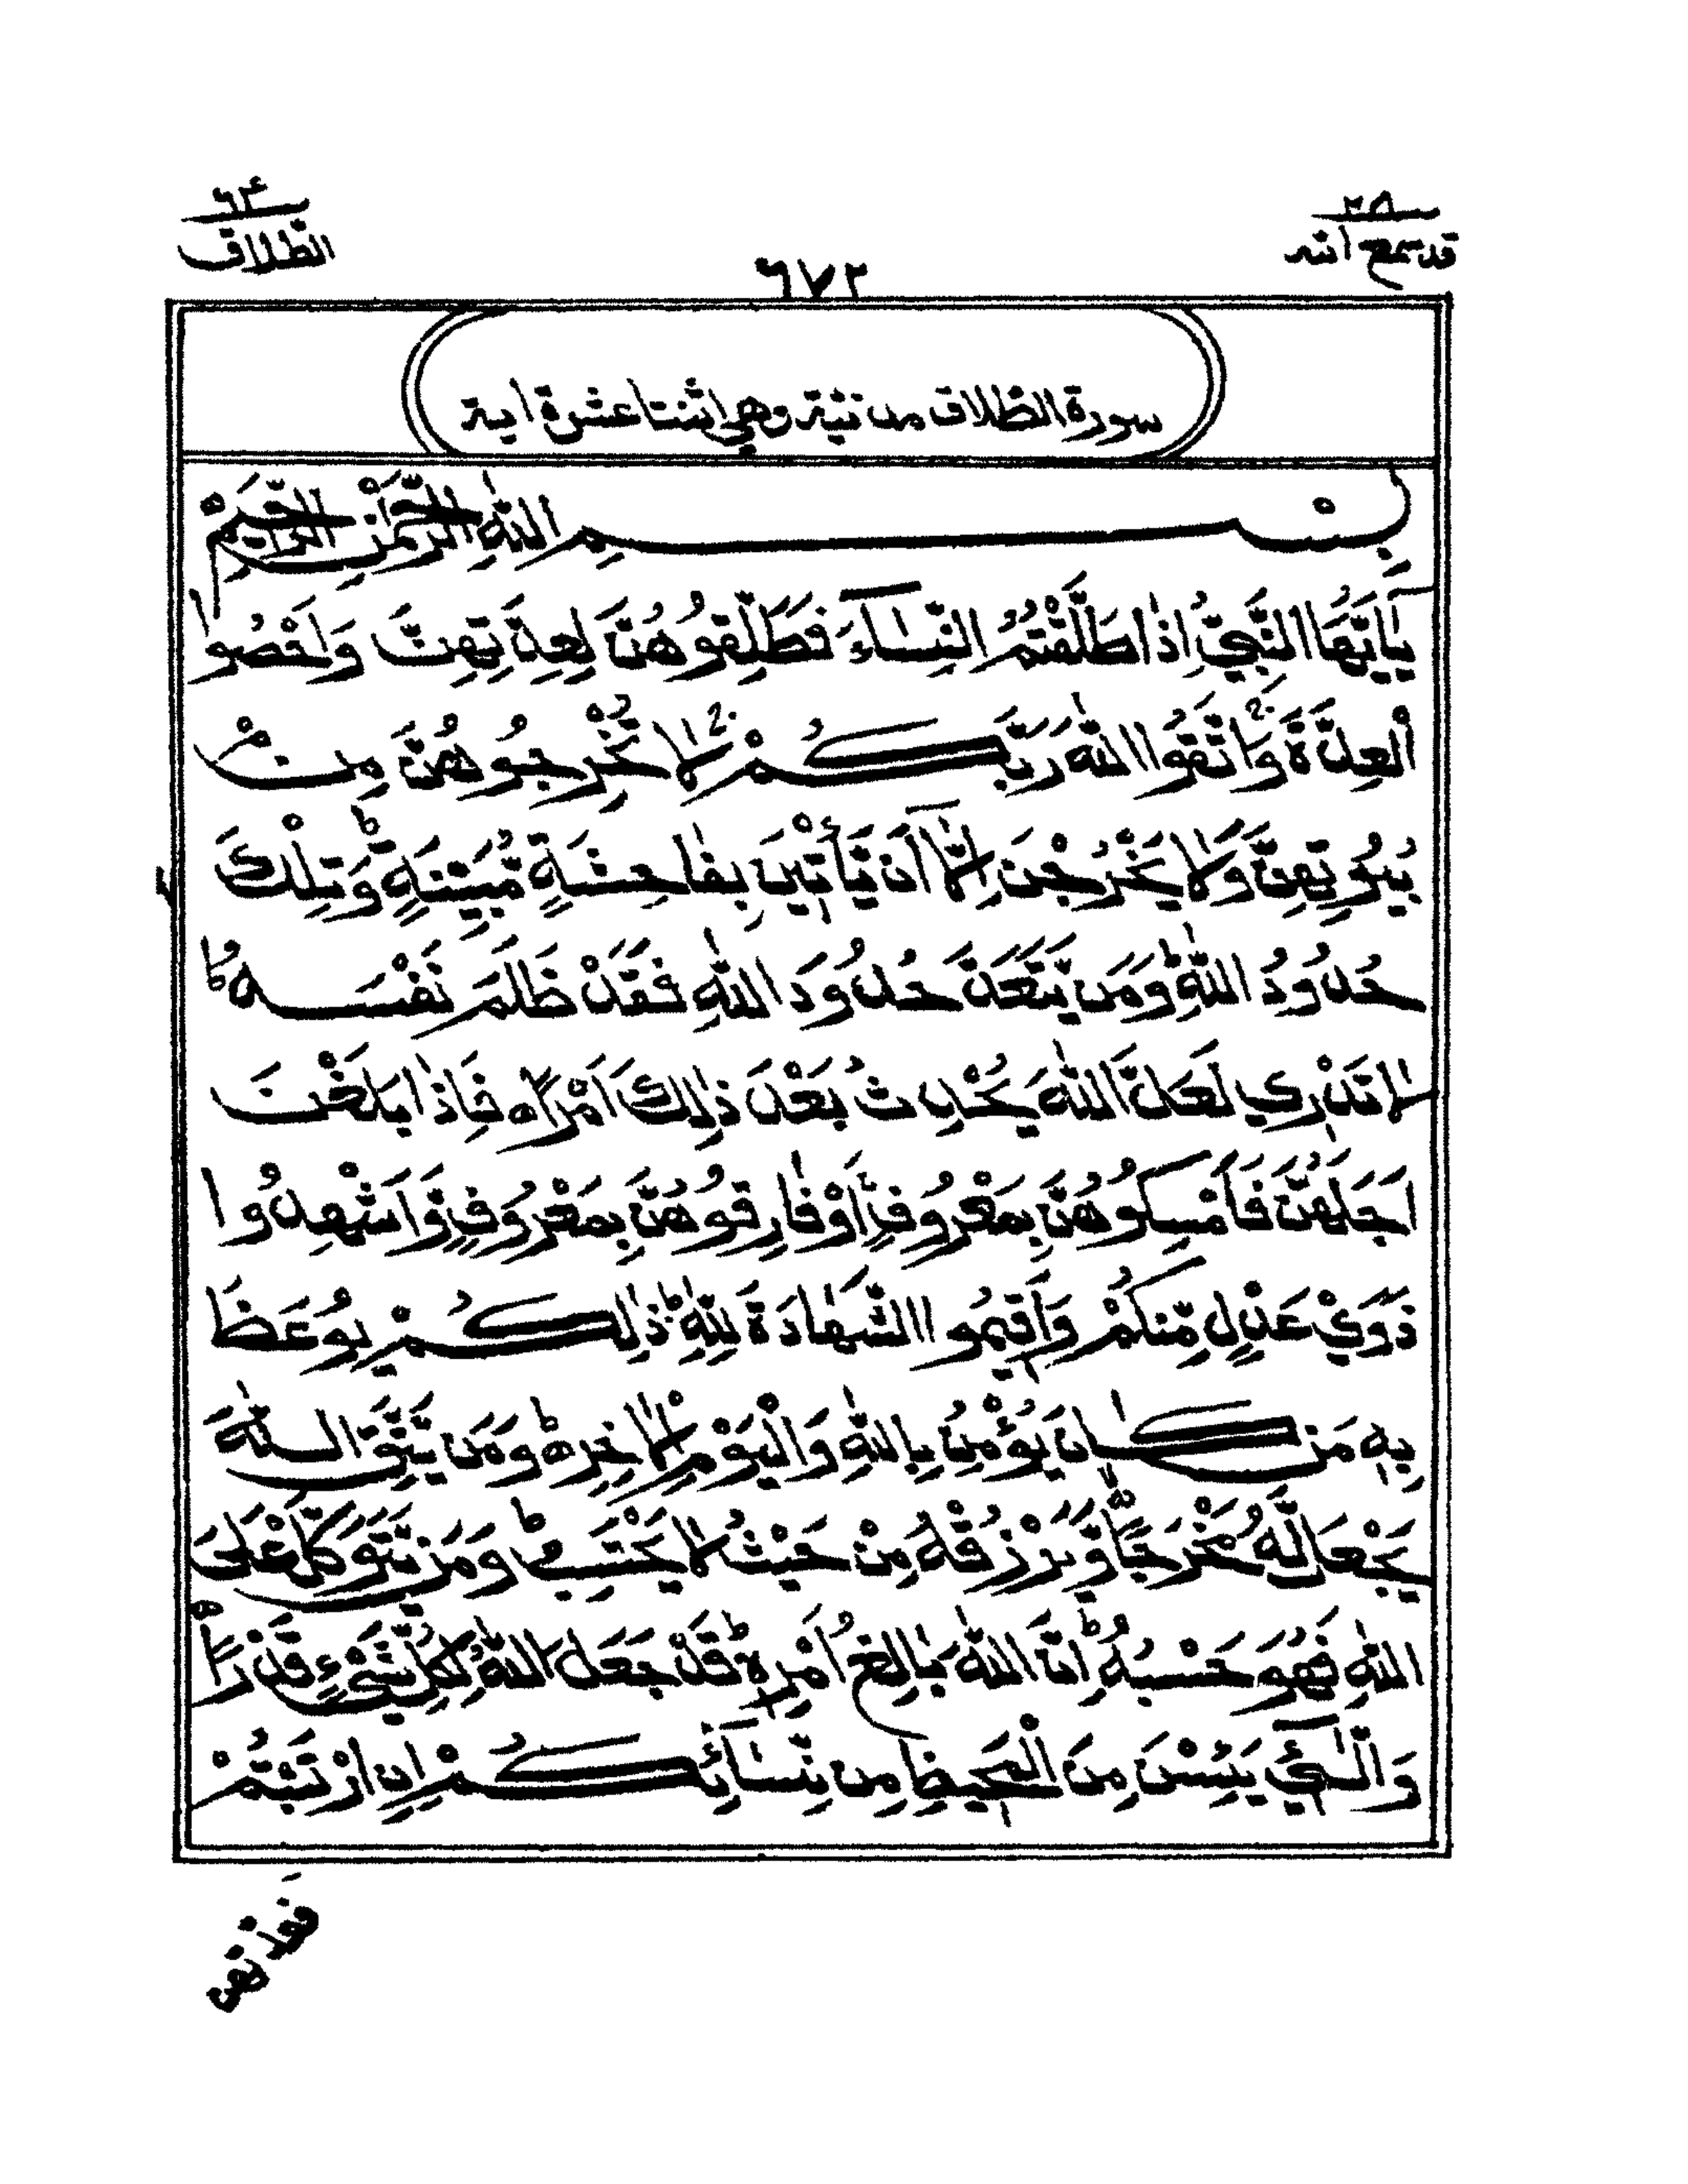 ٢٨
قد سمع الله
٦٧٢
٦٤
الطلاق
سورة الطلاق مدنية وهي اثنتا عشرة اية
بِسْمِ اللّٰهِ الرَّحْمٰنِ الرَّحِيْمِ
يٰٓاَيُّهَا النَّبِيُّ اِذَا طَلَّقْتُمُ النِّسَآءَ فَطَلِّقُوْهُنَّ لِعِدَّتِهِنَّ وَاَحْصُوا
الْعِدَّةَ ۚ وَاتَّقُوا اللّٰهَ رَبَّكُمْ ۚ لَا تُخْرِجُوْهُنَّ مِنْۢ
بُيُوْتِهِنَّ وَلَا يَخْرُجْنَ اِلَّآ اَنْ يَّاْتِيْنَ بِفَاحِشَةٍ مُّبَيِّنَةٍ ؕ وَتِلْكَ
حُدُوْدُ اللّٰهِ ؕ وَمَنْ يَّتَعَدَّ حُدُوْدَ اللّٰهِ فَقَدْ ظَلَمَ نَفْسَهٗ ؕ
لَا تَدْرِيْ لَعَلَّ اللّٰهَ يُحْدِثُ بَعْدَ ذٰلِكَ اَمْرًا ه فَاِذَا بَلَغْنَ
اَجَلَهُنَّ فَاَمْسِكُوْهُنَّ بِمَعْرُوْفٍ اَوْ فَارِقُوْهُنَّ بِمَعْرُوْفٍ وَّاَشْهِدُوْا
ذَوَيْ عَدْلٍ مِّنْكُمْ وَاَقِيْمُوا الشَّهَادَةَ لِلّٰهِ ؕ ذٰلِكُمْ يُوْعَظُ
بِهٖ مَنْ كَانَ يُؤْمِنُ بِاللّٰهِ وَالْيَوْمِ الْاٰخِرِ ؕ ه وَمَنْ يَّتَّقِ اللّٰهَ
يَجْعَلْ لَّهٗ مَخْرَجًا ۙ وَّيَرْزُقْهُ مِنْ حَيْثُ لَا يَحْتَسِبُ ؕ وَمَنْ يَّتَوَكَّلْ عَلَى
اللّٰهِ فَهُوَ حَسْبُهٗ ؕ اِنَّ اللّٰهَ بَالِغُ اَمْرِهٖ ؕ قَدْ جَعَلَ اللّٰهُ لِكُلِّ شَيْءٍ قَدْرًا ه
وَالّٰٓـِٔيْ يَئِسْنَ مِنَ الْمَحِيْضِ مِنْ نِّسَآئِكُمْ اِنِ ارْتَبْتُمْ